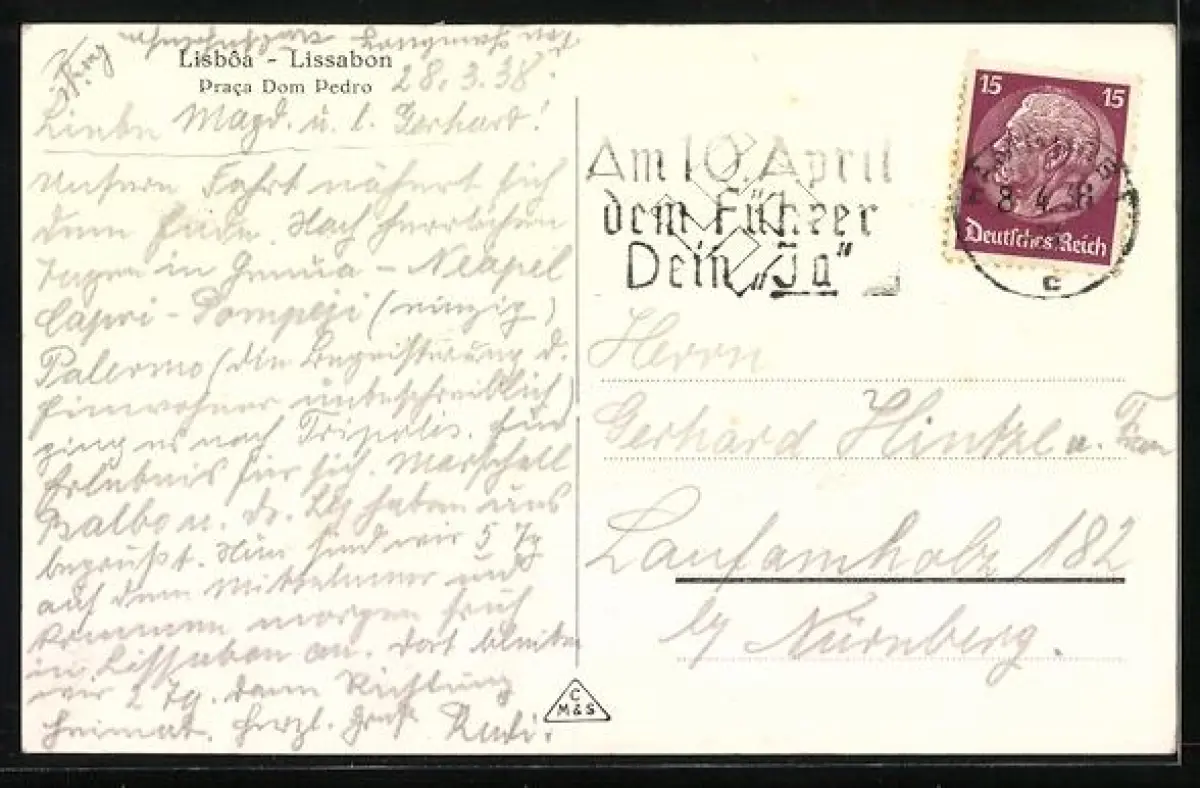 Lisbôa - Lissabon
Praça Dom Pedro
28.3.38
Liebe Magd. u. l. Gerhard!
Unsere Fahrt nähert sich
dem Ende. Nach herrlichen
Tagen in Genua - Neapel
Capri - Pompeji (einzig)
Palermo (die Begeisterung d.
Einwohner unbeschreiblich)
ging es nach Tripolis. Ein
Erlebnis für sich. Marschall
Balbo u. Dr. Ley haben uns
begrüßt. Nun sind wir 5 Tg
auf dem Mittelmeer und
kommen morgen früh
in Lissabon an. Dort bleiben
wir 2 Tg. dann Richtung
Heimat. Herzl. Gruß Rudi.
C
M&S
Am 10. April
dem Führer
Dein „Ja"
15 15
Deutsches Reich
8.4.38
c
Herrn
Gerhard Hintzl u. Frau
Laufamholz 182
b/ Nürnberg.